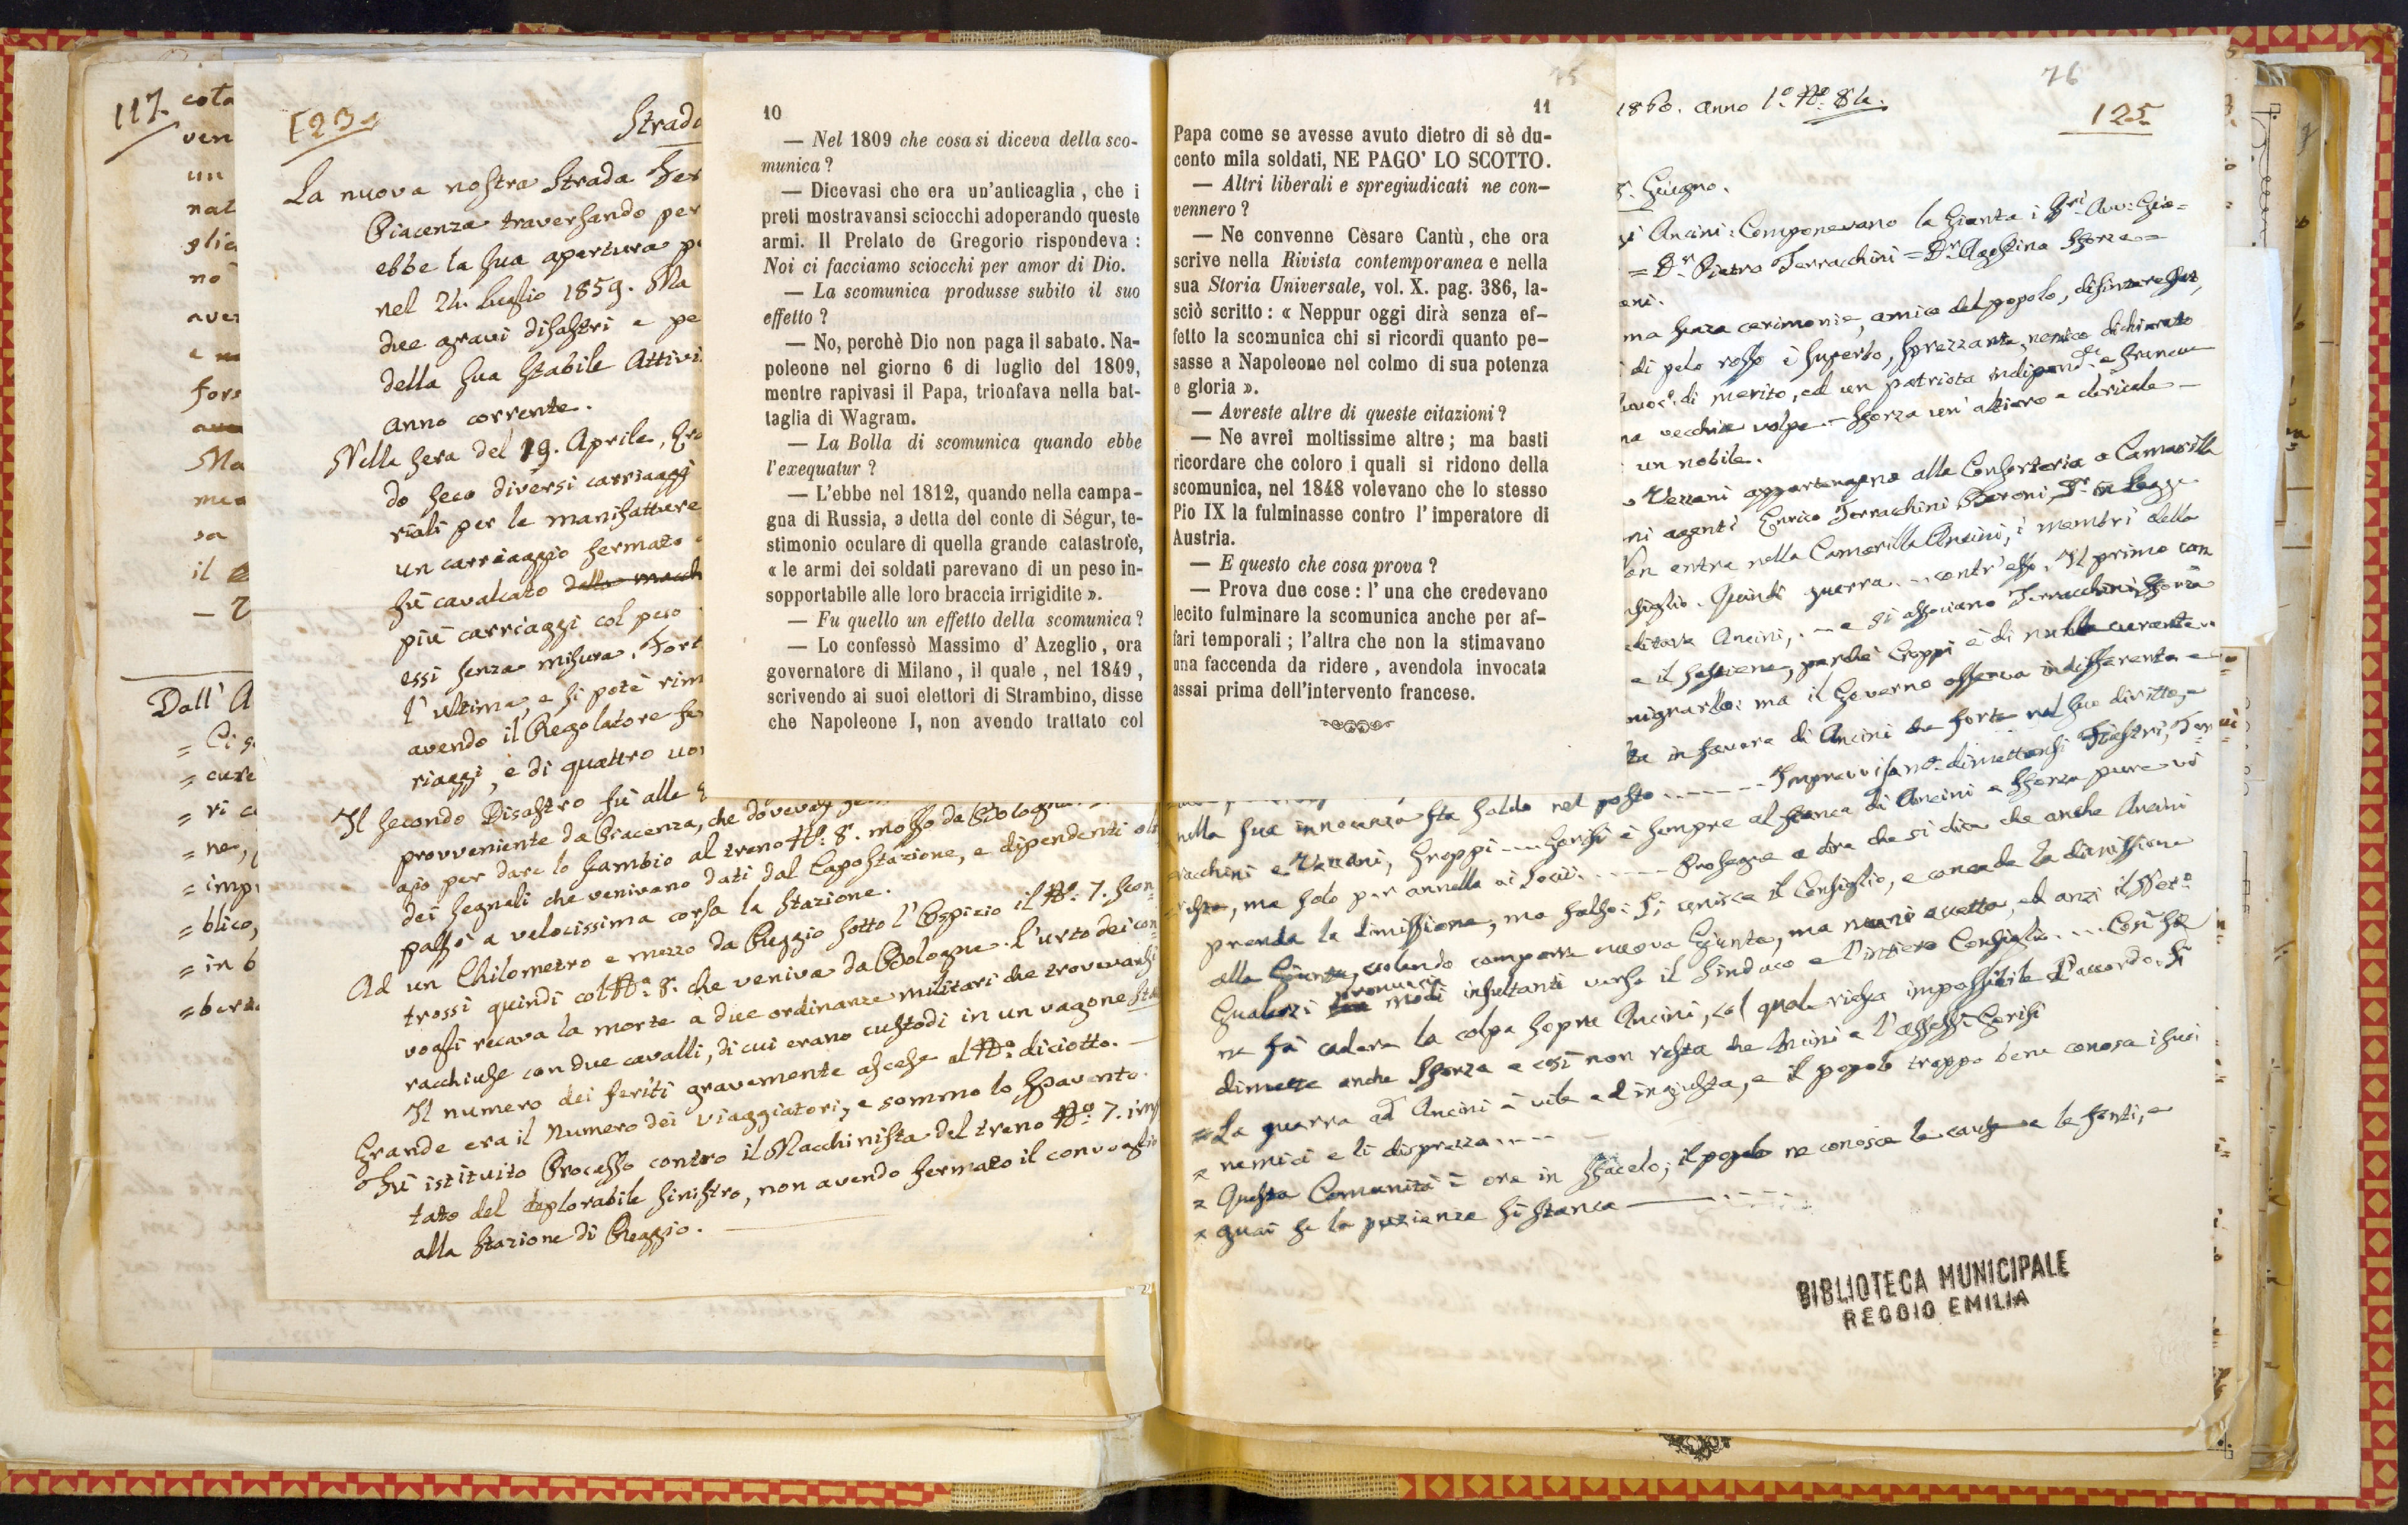 117.
cota
ven
un
nat
glie
no
aver
fors
Ma
mea
sa
il
Dall' A
= Ci s
= cure
= ri c
= ne,
= imp
= blico,
= in b
= bera
123
Strad
La nuova nostra Strada Fer
Piacenza traversando per
ebbe la sua apertura p
nel 21. Luglio 1859. Ma
due gravi disastri e pe
della sua stabile Attivi
anno corrente.
Nella sera del 19. Aprile,
do seco diversi carriaggi
riali per le manifatture
un carriaggio fermato
fù cavalcato dalla macch
più carriaggi col peso
essi senza misura. Fort
l'ultima, e si potè rim
avendo il Regolatore fer
riaggi, e di quattro uo
Il secondo Disastro fù alle
provveniente da Piacenza, che doveva
gio per dare lo scambio al treno N.º 8. mosso da Bologna
dei segnali che venivano dati dal Capostazione, e dipendenti ol
passò a velocissima corsa la stazione.
Ad un Chilometro e mezzo da Reggio sotto l'Ospizio il N.º 7. scon
trossi quindi col N.º 8. che veniva da Bologna. L'urto dei con
vogli recava la morte a due ordinanze militari che trovavansi
racchiuse con due cavalli, di cui erano custodi in un vagone
Il numero dei feriti gravemente ascese al N.º diciotto. —
Grande era il numero dei viaggiatori, e sommo lo spavento.
Fù istituito Processo contro il Macchinista del treno N.º 7. im
tato del deplorabile sinistro, non avendo fermato il convoglio
alla stazione di Reggio. —
10
— Nel 1809 che cosa si diceva della sco-
munica ?
— Dicevasi che era un'anticaglia , che i
preti mostravansi sciocchi adoperando queste
armi. Il Prelato de Gregorio rispondeva :
Noi ci facciamo sciocchi per amor di Dio.
— La scomunica produsse subito il suo
effetto ?
— No, perchè Dio non paga il sabato. Na-
poleone nel giorno 6 di luglio del 1809,
mentre rapivasi il Papa, trionfava nella bat-
taglia di Wagram.
— La Bolla di scomunica quando ebbe
l'exequatur ?
— L'ebbe nel 1812, quando nella campa-
gna di Russia, a detta del conte di Ségur, te-
stimonio oculare di quella grande catastrofe,
« le armi dei soldati parevano di un peso in-
sopportabile alle loro braccia irrigidite ».
— Fu quello un effetto della scomunica ?
— Lo confessò Massimo d' Azeglio , ora
governatore di Milano , il quale , nel 1849 ,
scrivendo ai suoi elettori di Strambino, disse
che Napoleone I, non avendo trattato col
75
11
Papa come se avesse avuto dietro di sè du-
cento mila soldati, NE PAGO' LO SCOTTO.
— Altri liberali e spregiudicati ne con-
vennero ?
— Ne convenne Cesare Cantù , che ora
scrive nella Rivista contemporanea e nella
sua Storia Universale, vol. X. pag. 386, la-
sciò scritto : « Neppur oggi dirà senza ef-
fetto la scomunica chi si ricordi quanto pe-
sasse a Napoleone nel colmo di sua potenza
e gloria ».
— Avreste altre di queste citazioni ?
— Ne avrei moltissime altre ; ma basti
ricordare che coloro i quali si ridono della
scomunica, nel 1848 volevano che lo stesso
Pio IX la fulminasse contro l' imperatore di
Austria.
— E questo che cosa prova ?
— Prova due cose : l' una che credevano
lecito fulminare la scomunica anche per af-
fari temporali ; l'altra che non la stimavano
una faccenda da ridere , avendola invocata
assai prima dell'intervento francese.
76
1860. anno 1.º N.º 84.
125
5. Giugno.
Ancini: Componevano la Giunta i Sri. Avv: Gio=
= Dr. Pietro Terrachini = Dr. Agostino Sforza =
ma senza cerimonie, amico del popolo,
di pelo rosso è superbo, sprezzante, nemico dichiarato
di merito, ed un patriota indipend.te e franco
na vecchia volpe — Sforza un' altiero e clericale —
un nobile.
Vezzani appartengono alla Consorteria o Camarilla
ni agenti Enrico Terrachini Baroni Dr. in Legge
Non entra nella Camarilla Ancini, i membri della
siglio. Quindi guerra — contr'esso. Il primo con
Ancini, — e si associano Terrachini, Sforza
e il sostiene, perchè Groppi è di nulla curante
ma il Governo osserva indifferente e
ta in favore di Ancini che forte nel suo diritto, e
nella sua innocenza sta saldo nel posto ------- Improvvisan.te dimettonsi Fiastri, Ter
rachini e Vezzani, Groppi --- Gerisi è sempre al fianco di Ancini e Sforza pure vi
resta, ma solo per annella ai Socii. ----- Prosegue a dire che si dice che anche Ancini
prenda la dimissione, ma falso: Si unisce il Consiglio, e concede la dimissione
alla Giunta, volendo comporre nuova Giunta, ma niuni accetta, ed anzi il
Gualerzi pronuncia modi insultanti verso il Sindaco e l'intiero Consiglio. --- Così se
ne fà cadere la colpa sopra Ancini, col quale riesca impossibile l'accordo. Si
dimette anche Sforza e così non resta che Ancini e l'assess. Gerisi
= La guerra ad Ancini è vile ed ingiusta, e il popolo troppo bene conosce i suoi
= nemici e li disprezza ----
= Questa Comunità è ora in sfacelo; il popolo ne conosce le cause e le fonti, e
= guai se la pazienza si stanca —
BIBLIOTECA MUNICIPALE
REGGIO EMILIA